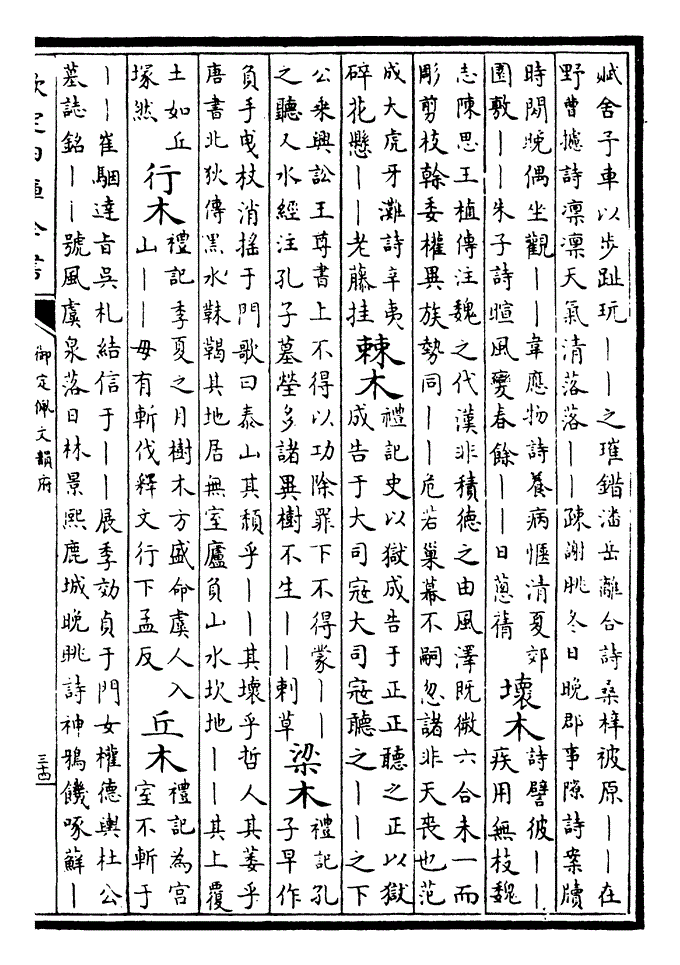 賦舍予車以步趾玩——之璀錯潘岳離合詩桑梓被原——在
野曹攄詩凛凛天氣清落落——疎謝朓冬日晚郡事隙詩案牘
時閒晚偶坐觀——韋應物詩養病愜清夏郊
園敷——朱子詩暄風變春餘——日蔥蒨
壞木
詩譬彼——
疾用無枝魏
志陳思王植傳注魏之代漢非積德之由風澤既微六合未一而
彫剪枝幹委權異族勢同——危若巢幕不嗣忽諸非天喪也范
成大虎牙灘詩辛夷
碎花懸——老藤挂
棘木
禮記史以獄成告于正正聽之正以獄
成告于大司寇大司寇聽之——之下
公乘興訟王尊書上不得以功除罪下不得蒙——
之聽人水經注孔子墓塋多諸異樹不生——刺草
梁木
禮記孔
子早作
負手曳杖消搖于門歌曰泰山其頹乎——其壞乎哲人其萎乎
唐書北狄傳黑水靺鞨其地居無室廬負山水坎地——其上覆
土如丘
塚然
行木
禮記季夏之月樹木方盛命虞人入
山——毋有斬伐釋文行下孟反
丘木
禮記為宮
室不斬于
——崔駰達旨吳札結信于——展季効貞于門女權德輿杜公
墓誌銘——號風虞泉落日林景熙鹿城晚眺詩神鴉饑啄蘚—
欽定四庫全書
御定佩文韻府
三十四